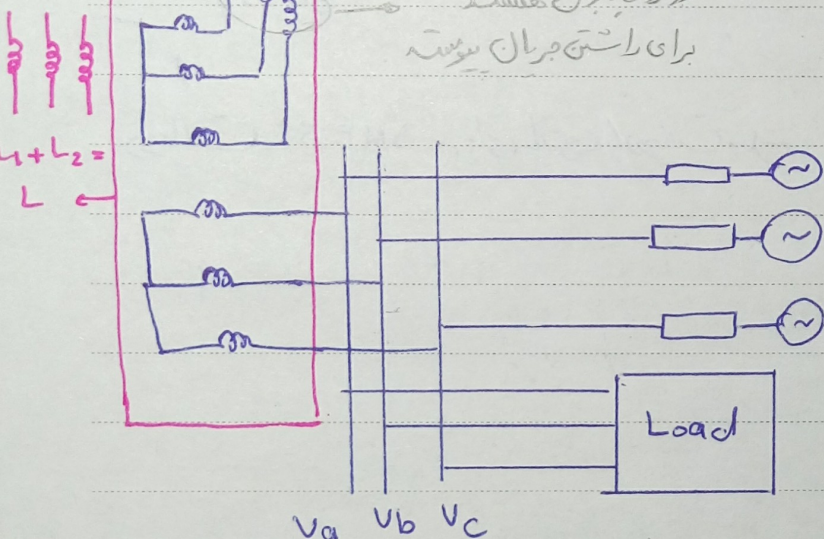 برای داشتن جریان پیوسته
L₁ + L₂ =
L
Load
Va Vb Vc